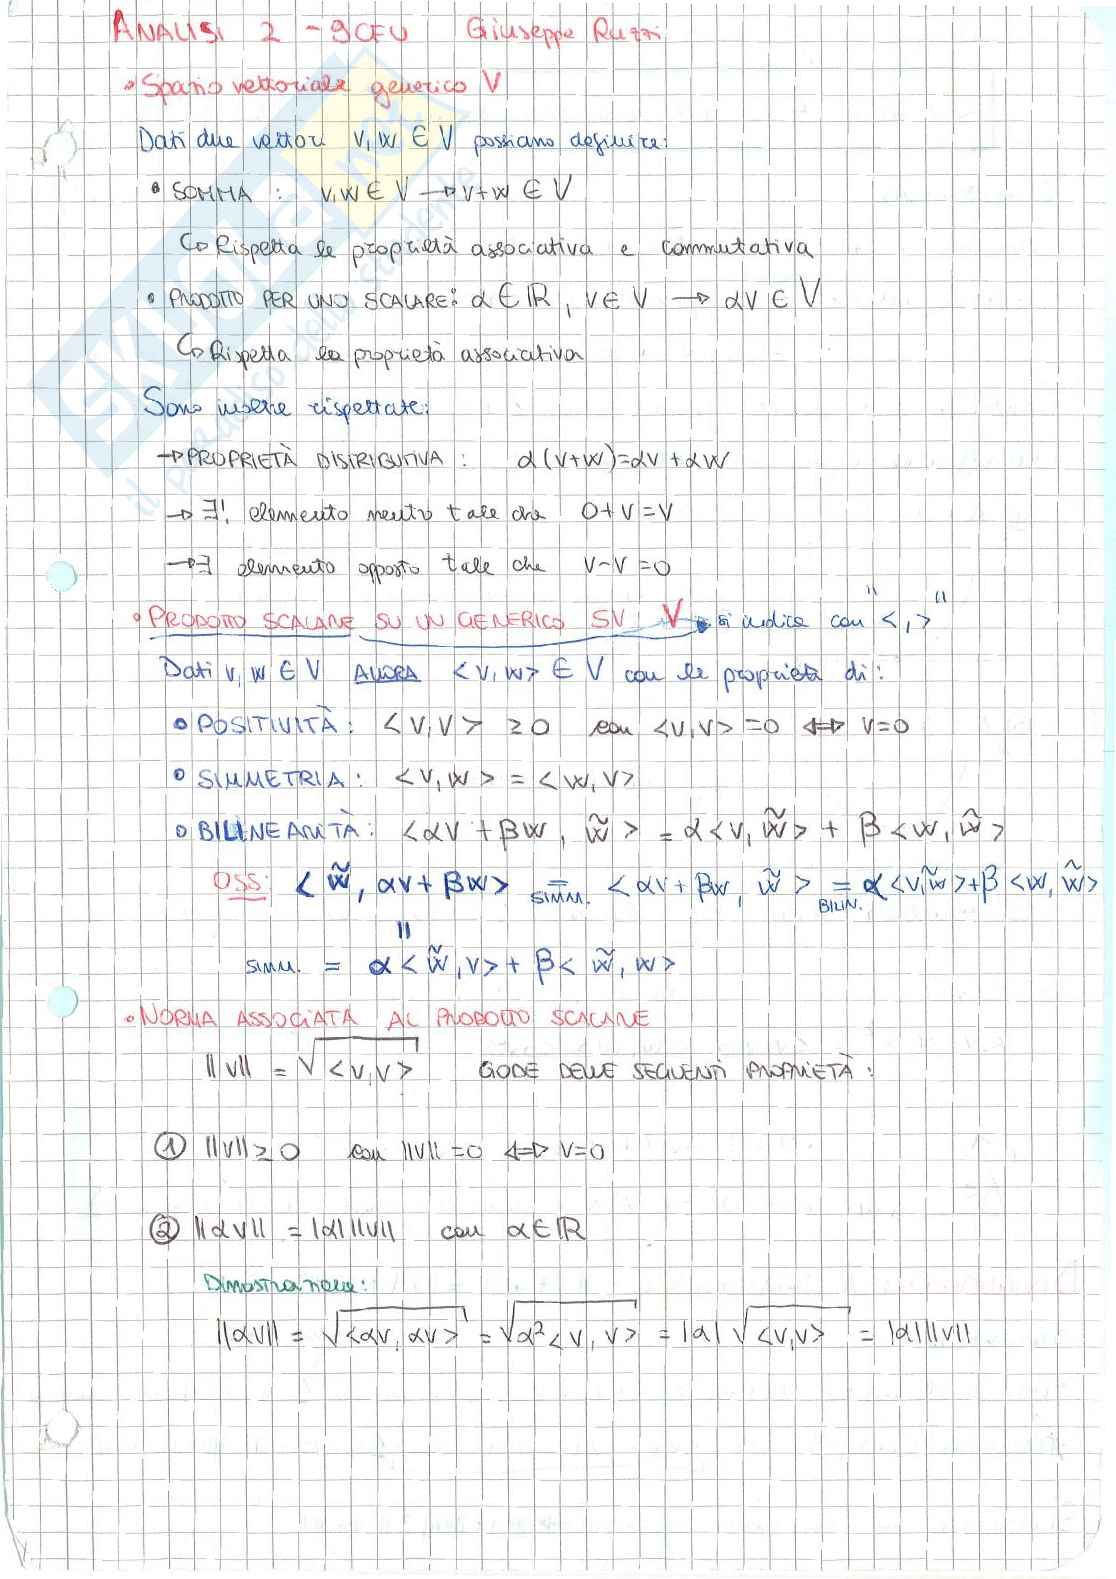 ANALISI 2 - 9CFU Giuseppe Ruzzi
• Spazio vettoriale generico V
Dati due vettori v, w ∈ V possiamo definire:
• SOMMA : v, w ∈ V → v+w ∈ V
↳ Rispetta le proprietà associativa e commutativa
• PRODOTTO PER UNO SCALARE: α ∈ ℝ, v ∈ V → αv ∈ V
↳ Rispetta la proprietà associativa
Sono inoltre rispettate:
→ PROPRIETÀ DISTRIBUTIVA : α(v+w)=αv+αw
→ ∃! elemento neutro tale che 0+v=v
→ ∃ elemento opposto tale che v-v=0
• PRODOTTO SCALARE SU UN GENERICO SV V → si indica con "< , >"
Dati v, w ∈ V ALLORA <v, w> ∈ V con le proprietà di:
• POSITIVITÀ: <v, v> ≥ 0 con <v, v> = 0 ⇔ v=0
• SIMMETRIA: <v, w> = <w, v>
• BILINEARITÀ: <αv + βw, w̃> = α<v, w̃> + β<w, w̃>
OSS: <w̃, αv+βw> = SIMM. <αv+βw, w̃> = BILIN. α<v, w̃>+β<w, w̃>
||
SIMM. = α<w̃, v> + β<w̃, w>
• NORMA ASSOCIATA AL PRODOTTO SCALARE
||v|| = √<v, v> GODE DELLE SEGUENTI PROPRIETÀ:
① ||v|| ≥ 0 con ||v|| = 0 ⇔ v=0
② ||αv|| = |α| ||v|| con α ∈ ℝ
Dimostrazione:
||αv|| = √<αv, αv> = √α²<v, v> = |α| √<v, v> = |α| ||v||
SKUOLA.net
il paradiso dello studente